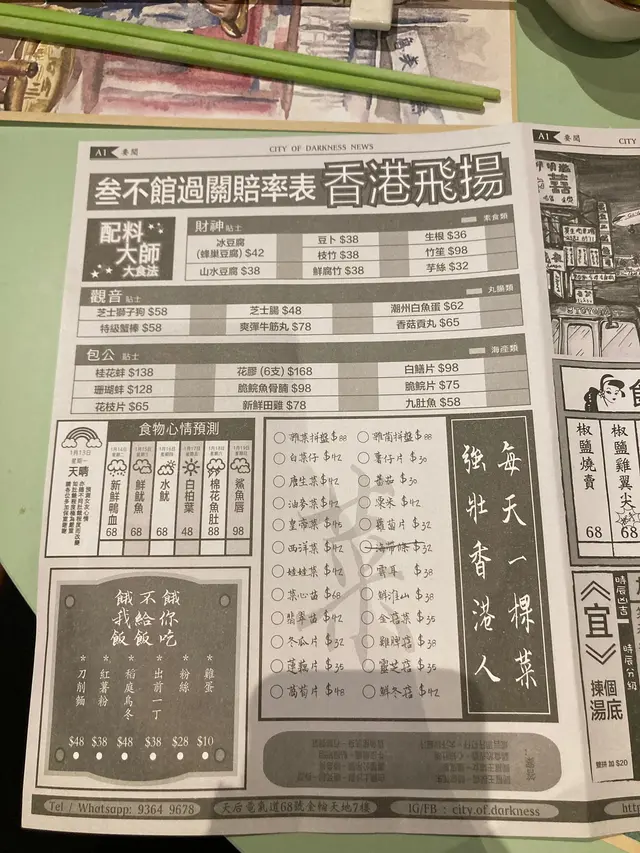 A1 要聞
CITY OF DARKNESS NEWS
叁不館過關賠率表 香港飛揚
配料大師
大食法
財神 貼士
素食類
冰豆腐
(蜂巢豆腐) $42
豆卜 $38
生根 $36
枝竹 $38
竹笙 $98
山水豆腐 $38
鮮腐竹 $38
芋絲 $32
觀音 貼士
丸腸類
芝士獅子狗 $58
芝士腸 $48
潮州白魚蛋 $62
特級蟹棒 $58
爽彈牛筋丸 $78
香菇貢丸 $65
包公 貼士
海産類
桂花蚌 $138
花膠 (6支) $168
白鱔片 $98
珊瑚蚌 $128
脆鯇魚骨腩 $98
脆鯇片 $75
花枝片 $65
新鮮田雞 $78
九肚魚 $58
食物心情預測
1月13日
星期一
天晴
1月14日
星期二
新鮮鴨血
68
1月15日
星期三
鮮魷魚
68
1月16日
星期四
水魷
68
1月17日
星期五
白柏葉
48
1月18日
星期六
棉花魚肚
88
1月19日
星期日
鯊魚唇
98
雜菜拼盤 $88
雜菌拼盤 $88
白菜仔 $42
薯仔片 $30
唐生菜 $42
番茄 $30
油麥菜 $42
粟米 $42
皇帝菜 $45
蘿蔔片 $32
西洋菜 $42
海帶條 $32
娃娃菜 $42
雲耳 $38
菜心苗 $68
鮮淮山 $38
翡翠苗 $42
金菇菜 $35
冬瓜片 $32
雞脾菇 $38
蓮藕片 $35
靈芝菇 $35
萵筍片 $48
鮮冬菇 $42
每天一棵菜
強壯香港人
餓不餓
我給你
飯飯吃
* 雞蛋 $10
* 粉絲 $28
* 出前一丁 $38
* 稻庭烏冬 $48
* 紅薯粉 $38
* 刀削麵 $48
Tel / Whatsapp: 9364 9678
天后電氣道68號金輪天地7樓
IG/FB : city.of.darkness
A1 要聞
椒鹽燒賣
68
椒鹽雞翼尖
68
《宜》
揀個
湯底
時辰凶吉
時辰分組